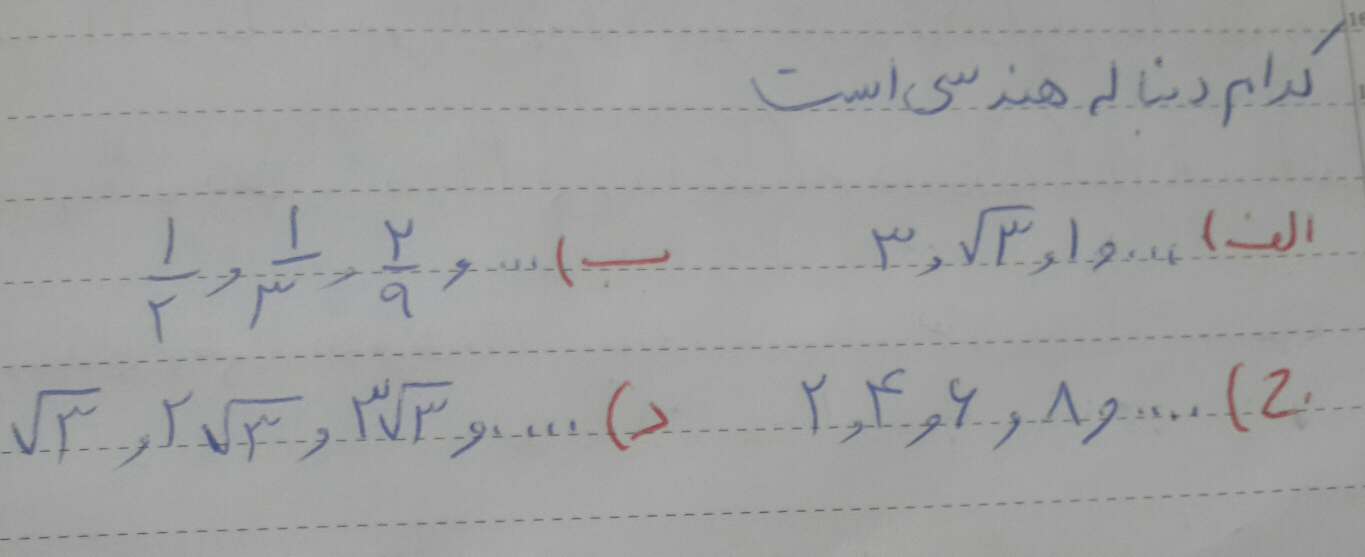 کدام دنباله هندسی است
الف) ۳ , √۳ , ۱ , ... ب) ۱/۲ , ۱/۳ , ۲/۹ , ...
ج) ۲ , ۴ , ۶ , ۸ , .... د) √۳ , ۲√۳ , ۳√۳ , ....